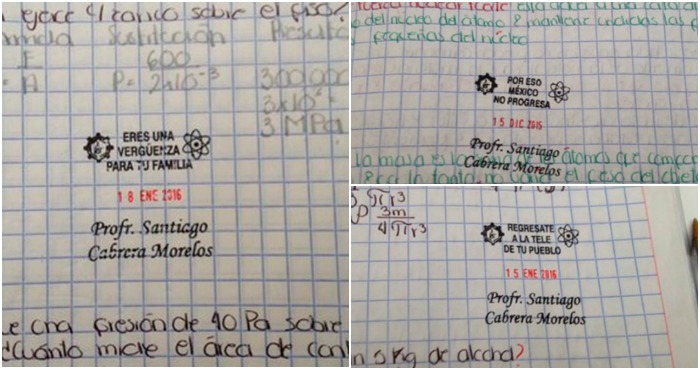 ejerce 4 tranco sobre el piso?
Sustitución Resulta
F 600 300,000
= A P= 2x10⁻³ 3x10
3 MPa
ERES UNA
VERGÜENZA
PARA TU FAMILIA
18 ENE 2016
Profr. Santiago
Cabrera Morelos
una presión de 40 Pa sobre
¿Cuánto mide el área de con
del núcleo del átomo
pequeñas del núcleo
POR ESO
MÉXICO
NO PROGRESA
15 DIC 2015
Profr. Santiago
Cabrera Morelos
la masa es átomos que
por lo tanto no
3m
P 4πr³
REGRESATE
A LA TELE
DE TU PUEBLO
15 ENE 2016
Profr. Santiago
Cabrera Morelos
n 5 kg de alcohol?